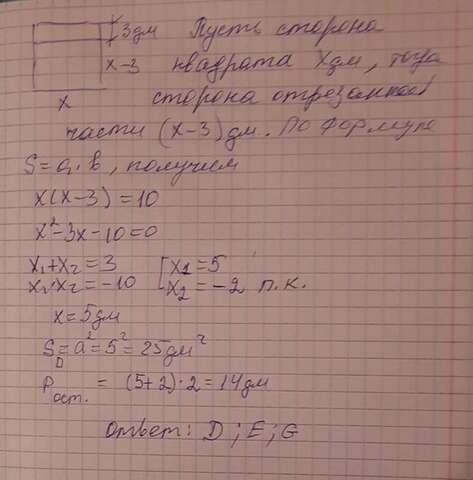 3дм Пусть сторона
x-3 квадрата x дм, тогда
x сторона отрезанной
части (x-3) дм. По формуле
S=a·b, получим
x(x-3)=10
x²-3x-10=0
x₁+x₂=3 [x₁=5
x₁·x₂=-10 x₂=-2 п.к.
x=5дм
S□=a²=5²=25дм²
Pост. = (5+2)·2=14дм
Ответ: D; E; G